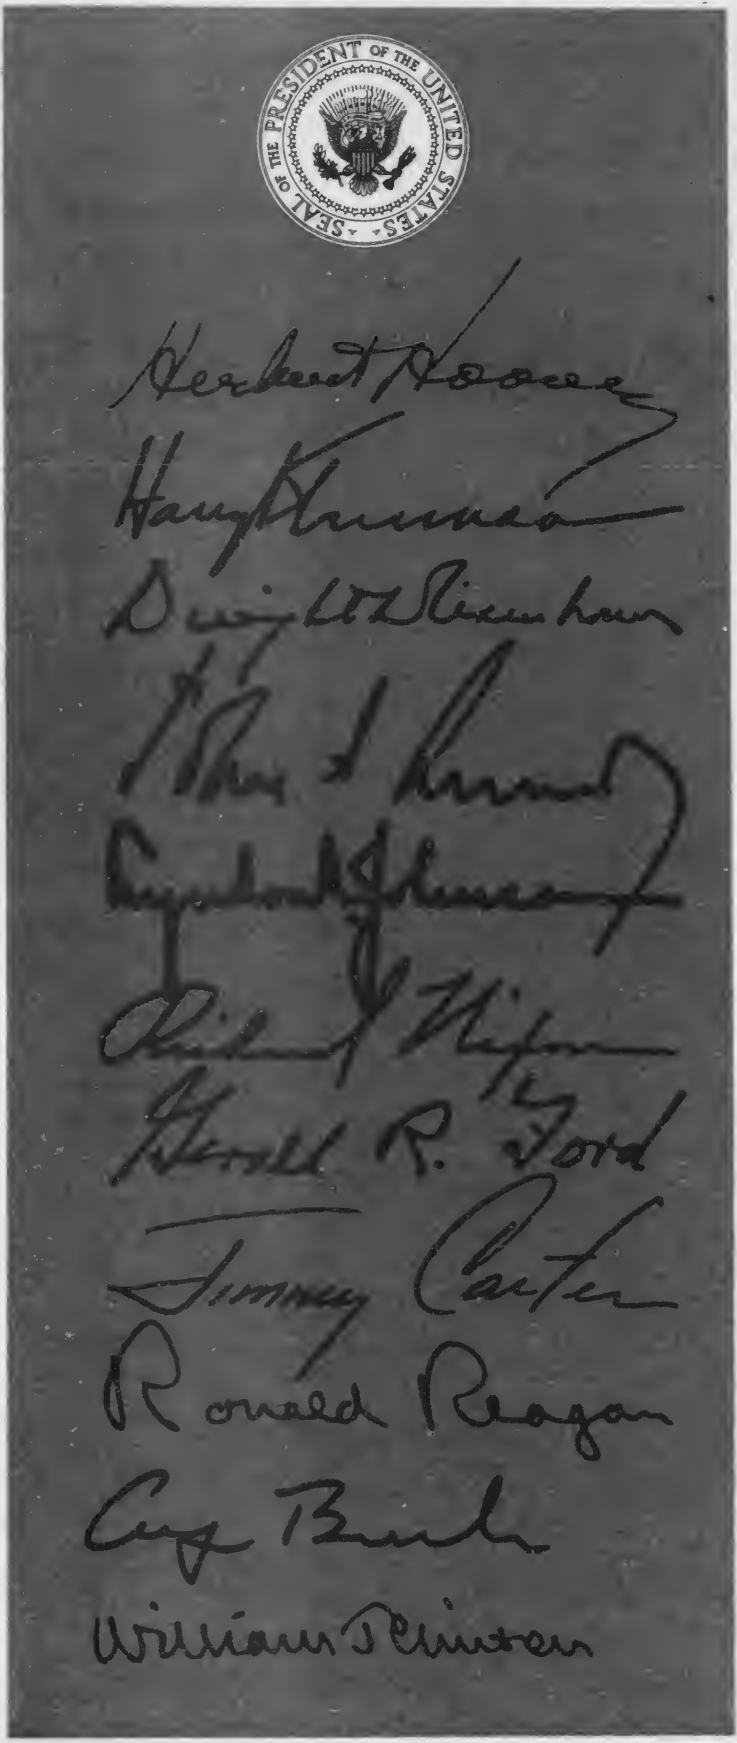 SEAL OF THE PRESIDENT OF THE UNITED STATES
Herbert Hoover
Harry S Truman
Dwight D Eisenhower
John F Kennedy
Lyndon B Johnson
Richard Nixon
Gerald R. Ford
Jimmy Carter
Ronald Reagan
George Bush
William J Clinton